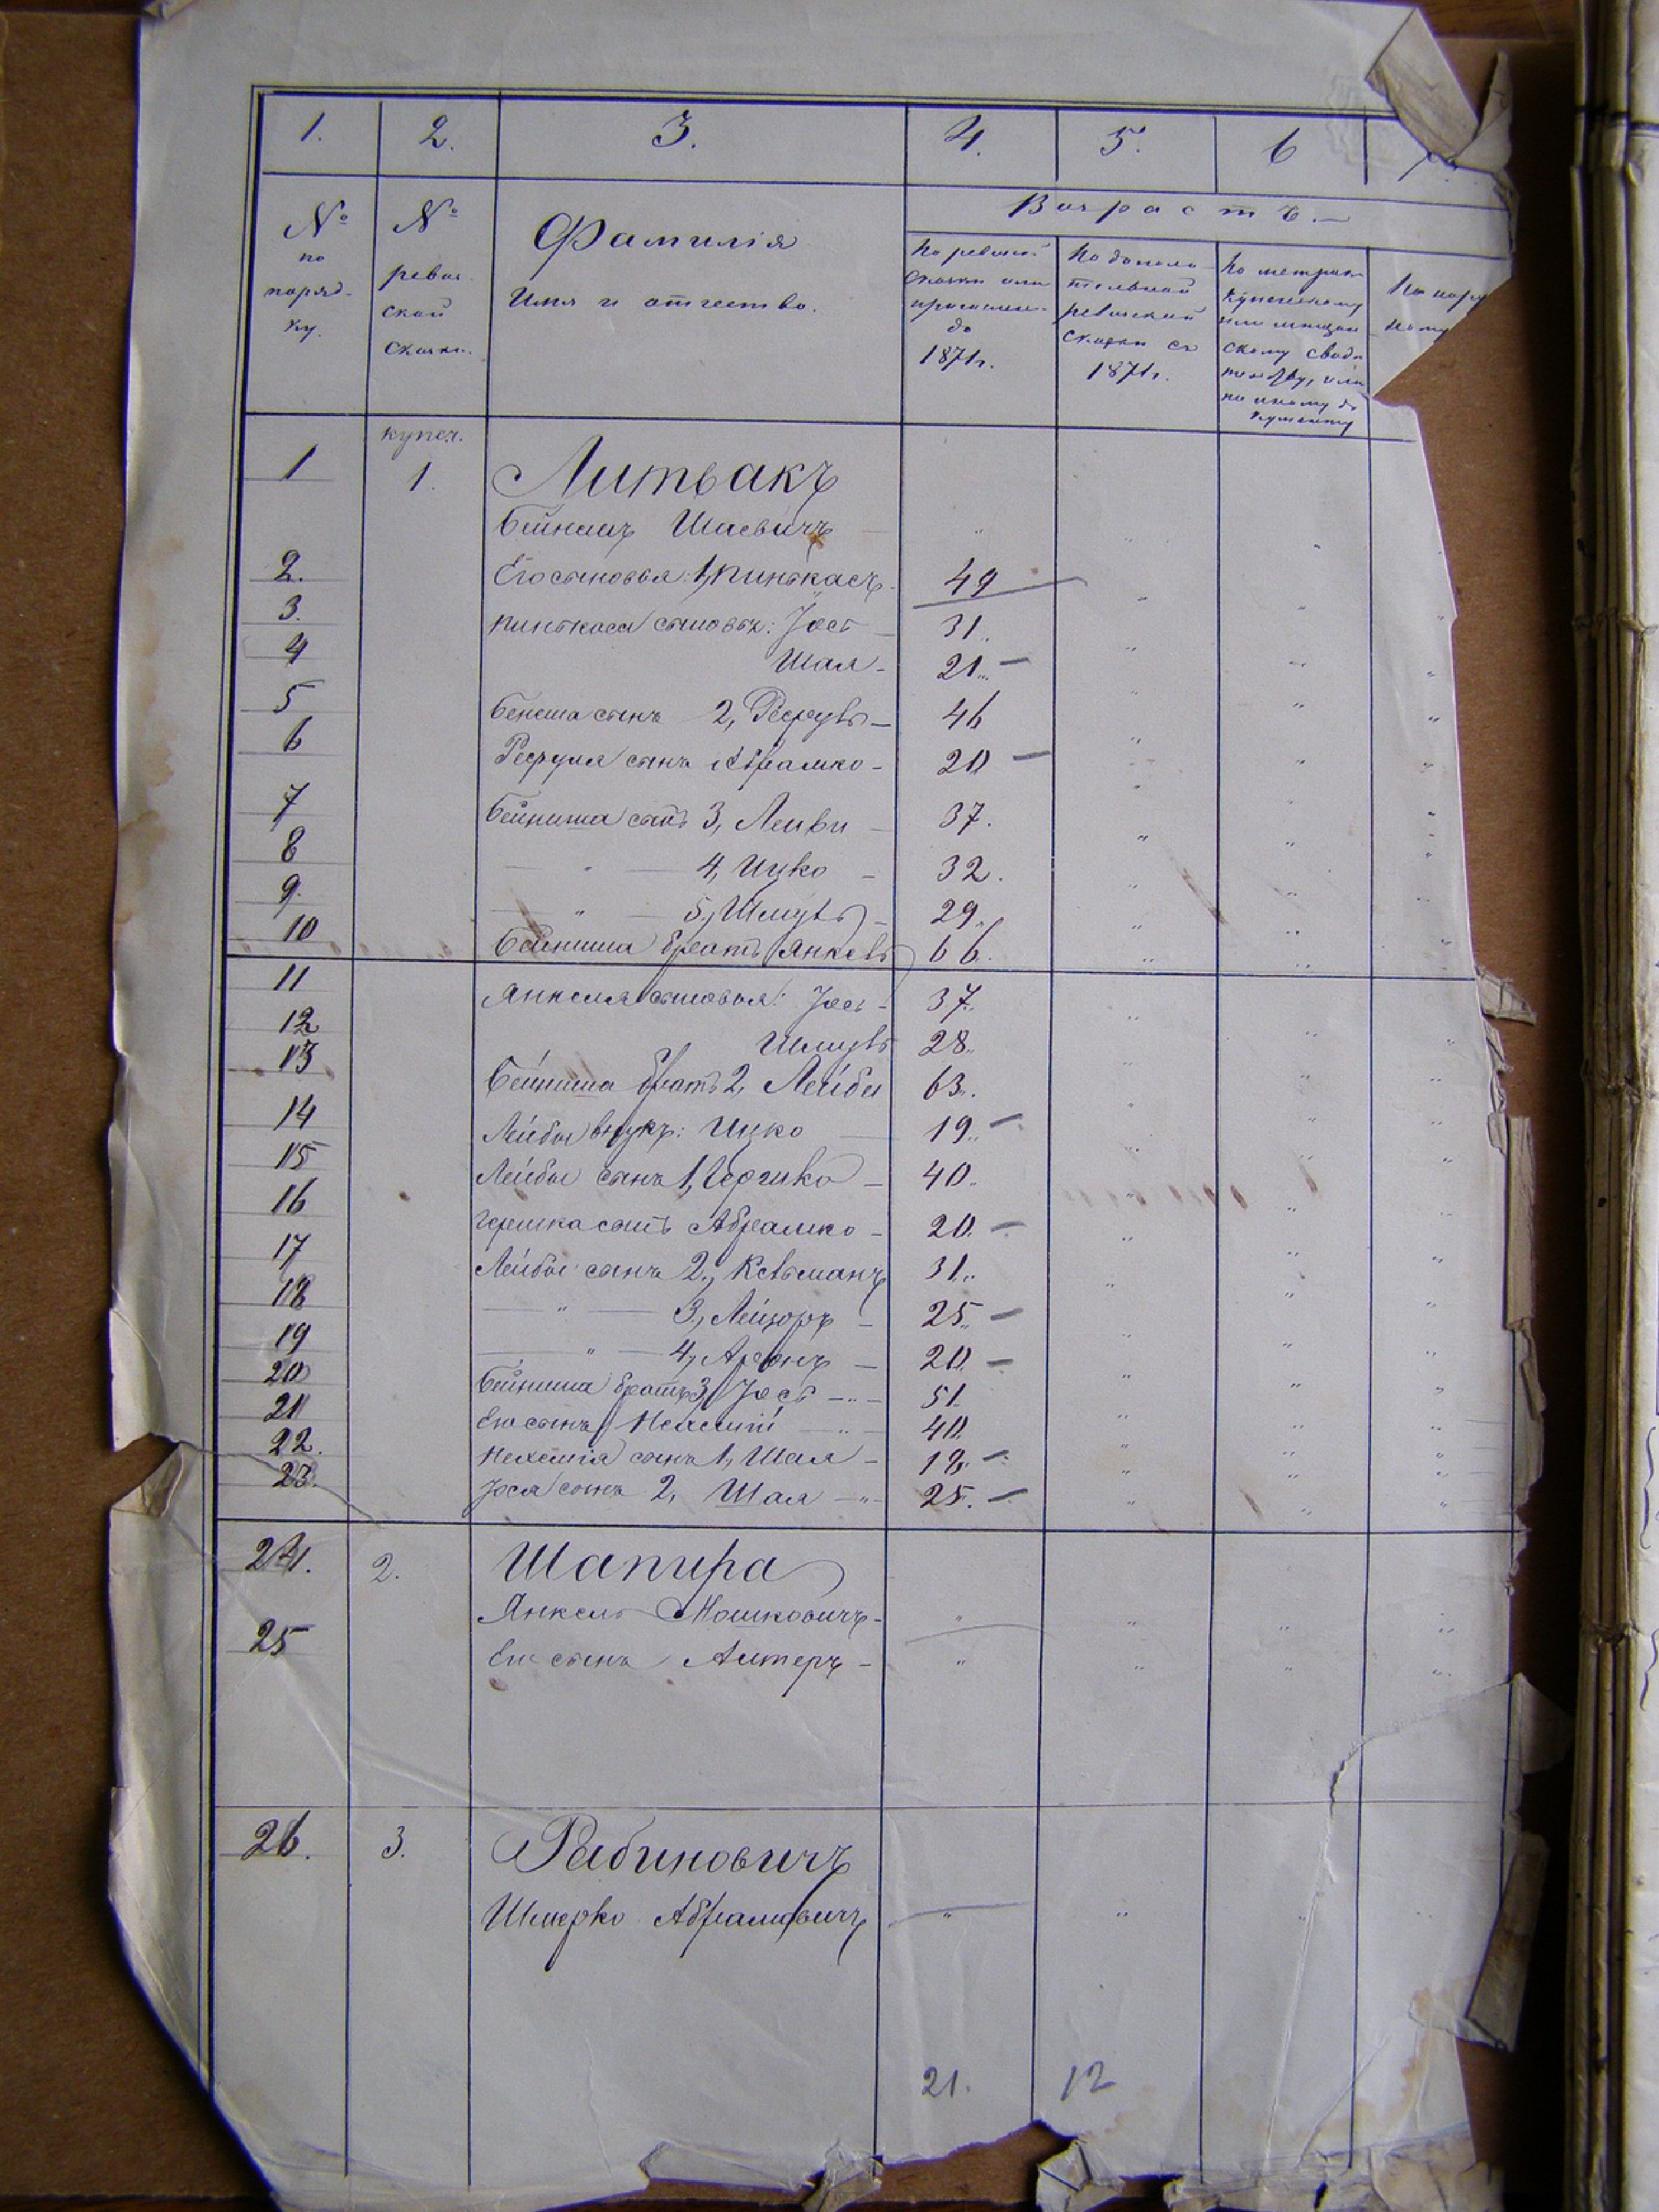 1. 2. 3. 4. 5. 6
№ по поряд- ку.
№ ревиз. ской сказки.
Фамилія Имя и отчество.
Возрастъ.
По ревизс. сказки или до 1871г.
По дополни- тельной ревизской сказки съ 1871г.
По метрик. купеческому или мещан скому или по иному до кументу
купеч.
1 1. Литвакъ
Бейнишъ Шаевичъ — "
2. Его сыновья: 1, Пинькасъ - 49
3. Пинькаса сыновья: Іось — 31.
4 Шая - 21. —
5 Бениша сынъ 2, Рефулъ — 46
6 Рефула сынъ Абрамко - 20 —
7 Бейниша сынъ 3, Лейви — 37.
8 — " — 4, Ицко — 32.
9. — " — 5, Шмуль - 29.
10 Бейниша братъ Янкель 66.
11 Янкеля сыновья: Іось - 37.
12 Шмуль 28.
13 Бейниша братъ 2, Лейба 63.
14 Лейбы внукъ: Ицко — 19. —
15 Лейбы сынъ 1, Гершко — 40.
16 Гершка сынъ Абрамко - 20. —
17 Лейбы сынъ 2, Кельманъ 31.
18 — " — 3, Лейзоръ - 25. —
19 — " — 4, Аронъ — 20. —
20 Бейниша братъ 3, Іось — " — 51.
21 Его сынъ Нехемій — " — 40.
22. Нехемія сынъ 1, Шая - 18. —
23. Іося сынъ 2, Шая — " — 25. —
24. 2. Шапира
Янкель Мошковичъ - "
25 Его сынъ Алтеръ - "
26. 3. Рабиновичъ
Шмерко Абрамовичъ "
21. 12